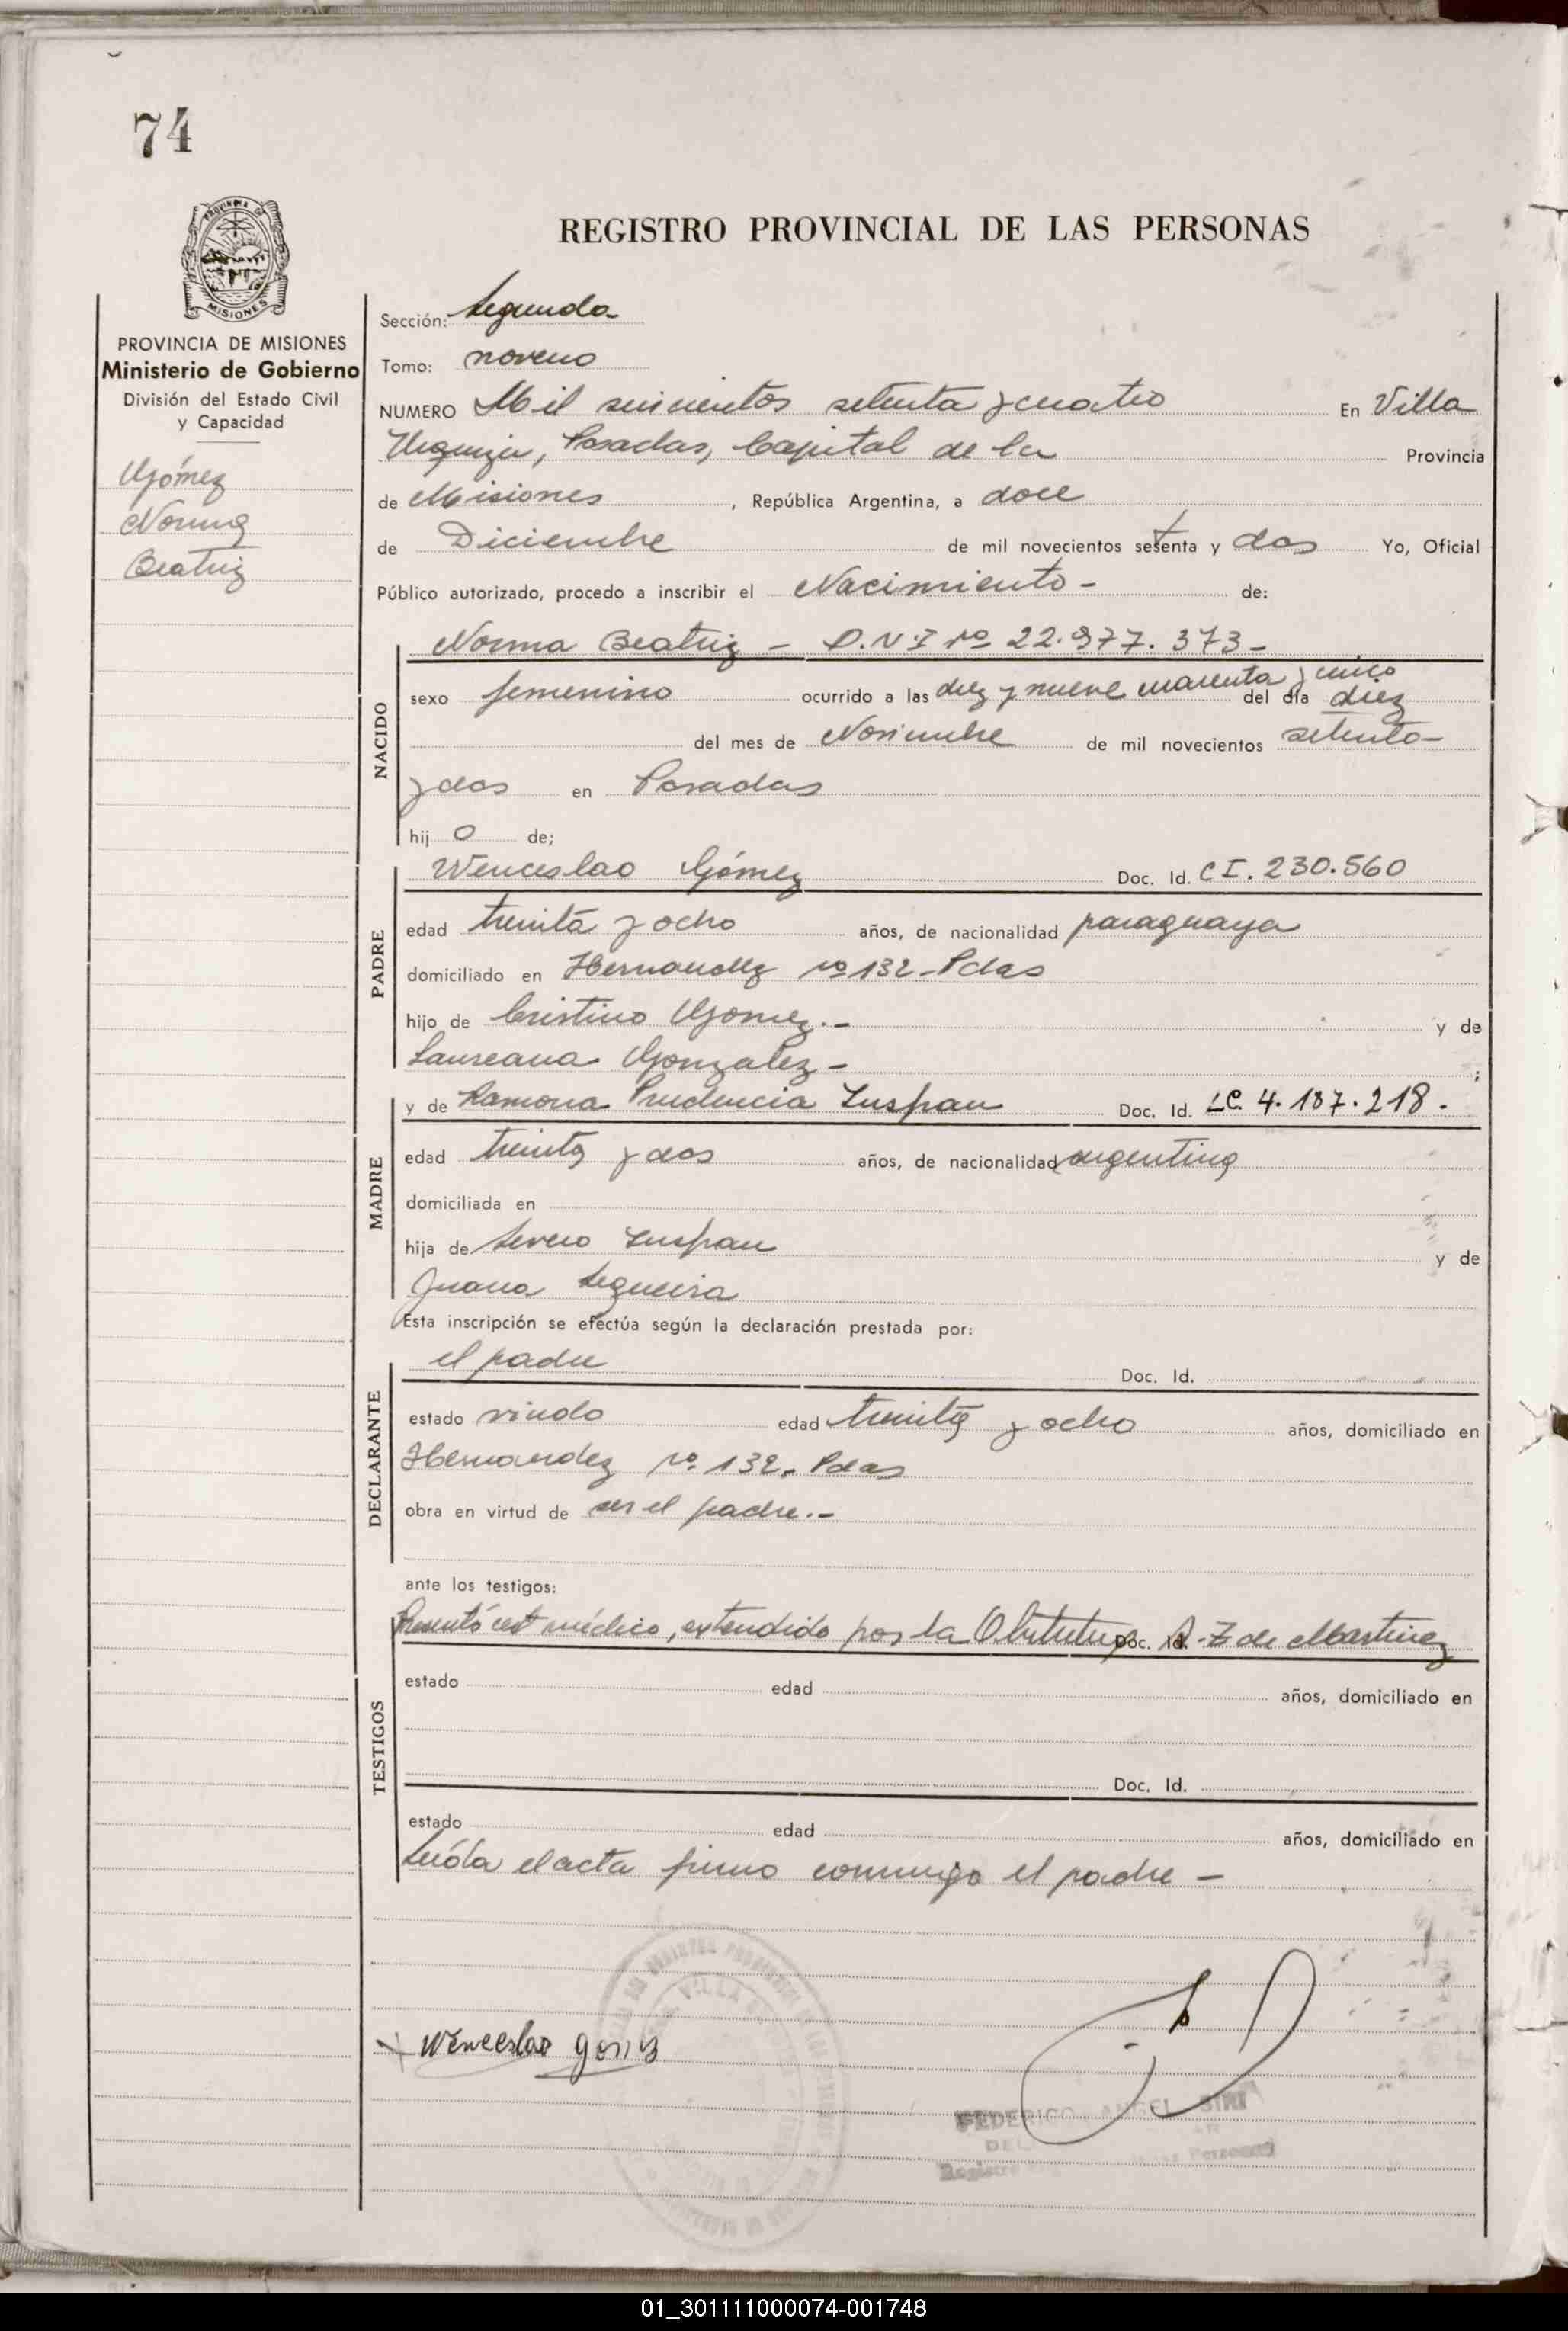 74
PROVINCIA DE MISIONES
REGISTRO PROVINCIAL DE LAS PERSONAS
PROVINCIA DE MISIONES
Ministerio de Gobierno
División del Estado Civil
y Capacidad
Gómez
Norma
Beatriz
Sección: Segunda
Tomo: noveno
NUMERO Mil seiscientos setenta y cuatro En Villa
Urquiza, Posadas, Capital de la Provincia
de Misiones, República Argentina, a doce
de Diciembre de mil novecientos setenta y dos Yo, Oficial
Público autorizado, procedo a inscribir el Nacimiento - de:
Norma Beatriz - D.N.I nº 22.977.373-
sexo femenino ocurrido a las diez y nueve cuarenta y cinco del día diez
del mes de Noviembre de mil novecientos setenta-
y dos en Posadas
hij o de;
NACIDO
Wenceslao Gómez Doc. Id. CI. 230.560
edad treinta y ocho años, de nacionalidad paraguaya
domiciliado en Hernandez nº 132-Pdas
hijo de Cristino Gomez.- y de
Laureana Gonzalez - ;
PADRE
y de Ramona Prudencia Luspan Doc. Id. LC. 4.137.218.
edad treinta y dos años, de nacionalidad argentina
domiciliada en
hija de Severo Luspan y de
Juana Sequeira
MADRE
Esta inscripción se efectúa según la declaración prestada por:
el padre Doc. Id.
estado viudo edad treinta y ocho años, domiciliado en
Hernandez nº 132. Pdas
obra en virtud de ser el padre.-
DECLARANTE
ante los testigos:
Presentó cert médico, extendido por la Obstetra Doc. Id. -Z de Martinez
estado edad años, domiciliado en
Doc. Id.
estado edad años, domiciliado en
TESTIGOS
Leída el acta firmo conmigo el padre -
Wenceslao gomez
FEDERICO ANGEL SIRI
Registro Personas
01_301111000074-001748